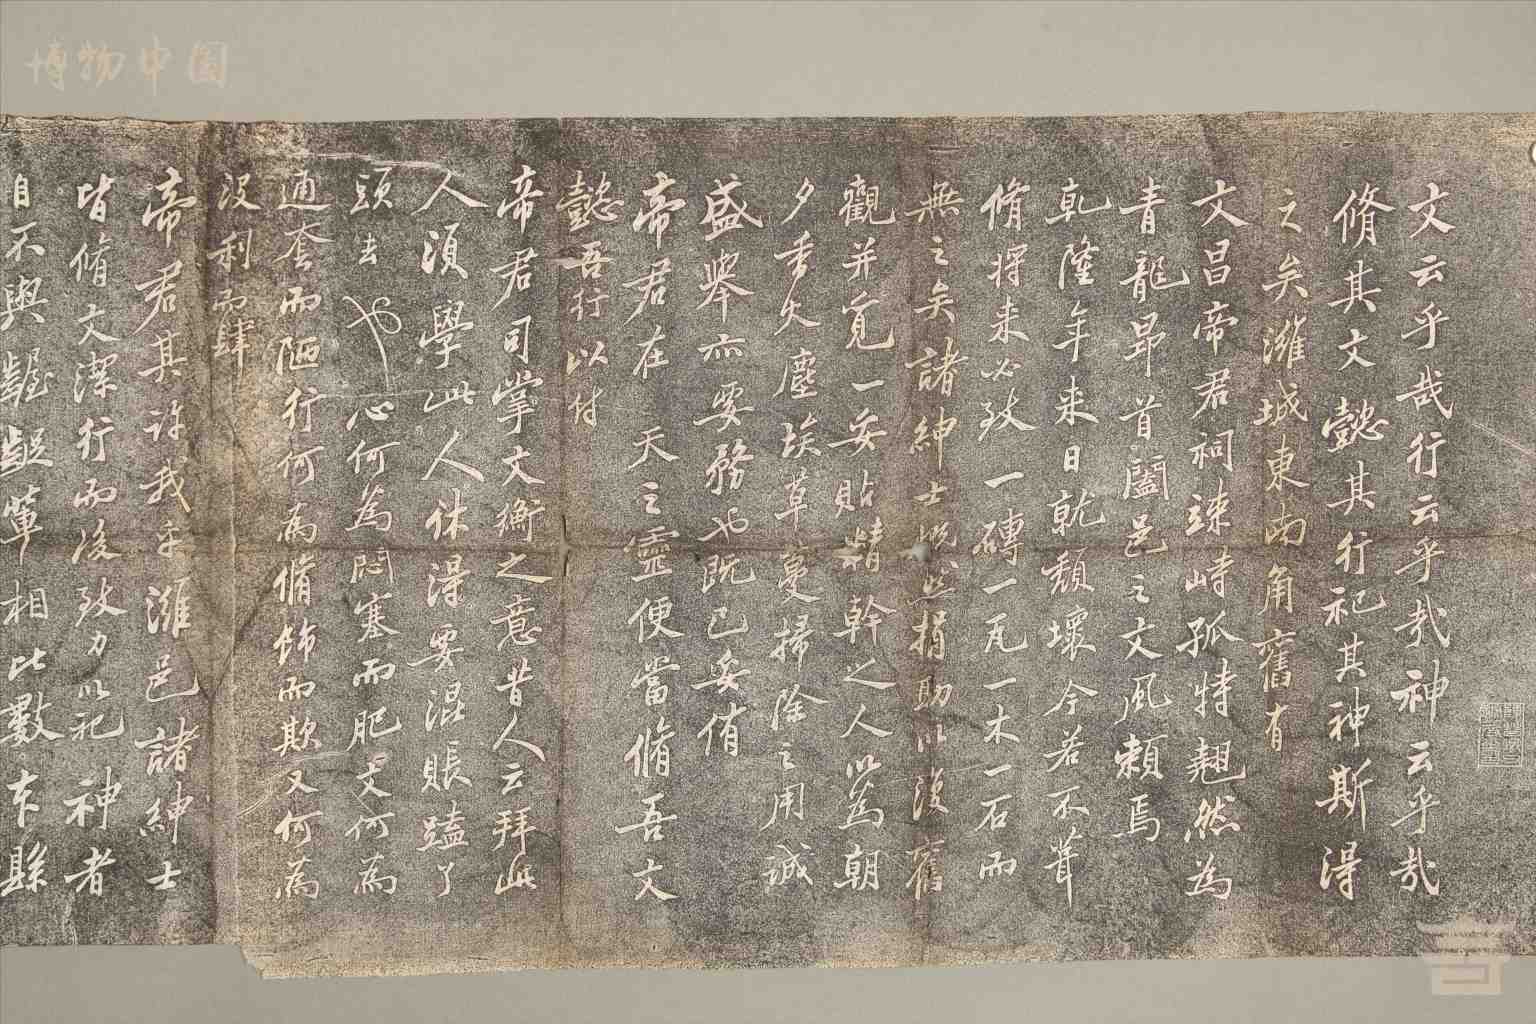 文云乎哉行云乎哉神云乎哉
脩其文懿其行祀其神斯得
之矣濰城東南角舊有
文昌帝君祠竦峙孤特翹然為
青龍昂首闔邑之文風賴焉
乾隆年来日就頹壞今若不葺
脩将来必致一磚一瓦一木一石而
無之矣諸紳士慨然捐助以復舊
觀并覓一妥貼精幹之人以為朝
夕香火塵埃草蔓掃除之用誠
盛舉亦要務也既已妥侑
帝君在天之靈便當脩吾文
懿吾行以付
帝君司掌文衡之意昔人云拜此
人須學此人休得要混賬磕了
頭去也心何為悶塞而肥文何為
通套而陋行何為脩飾而欺又何為
没利而肆
帝君其許我乎濰邑諸紳士
皆脩文潔行而後致力以祀神者
自不與齷齪輩相比數本縣
博物中国